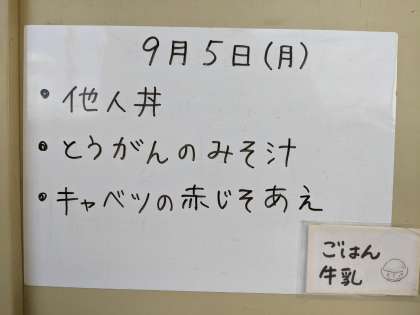 9月5日(月)
・他人丼
・とうがんのみそ汁
・キャベツの赤じそあえ
ごはん
牛乳